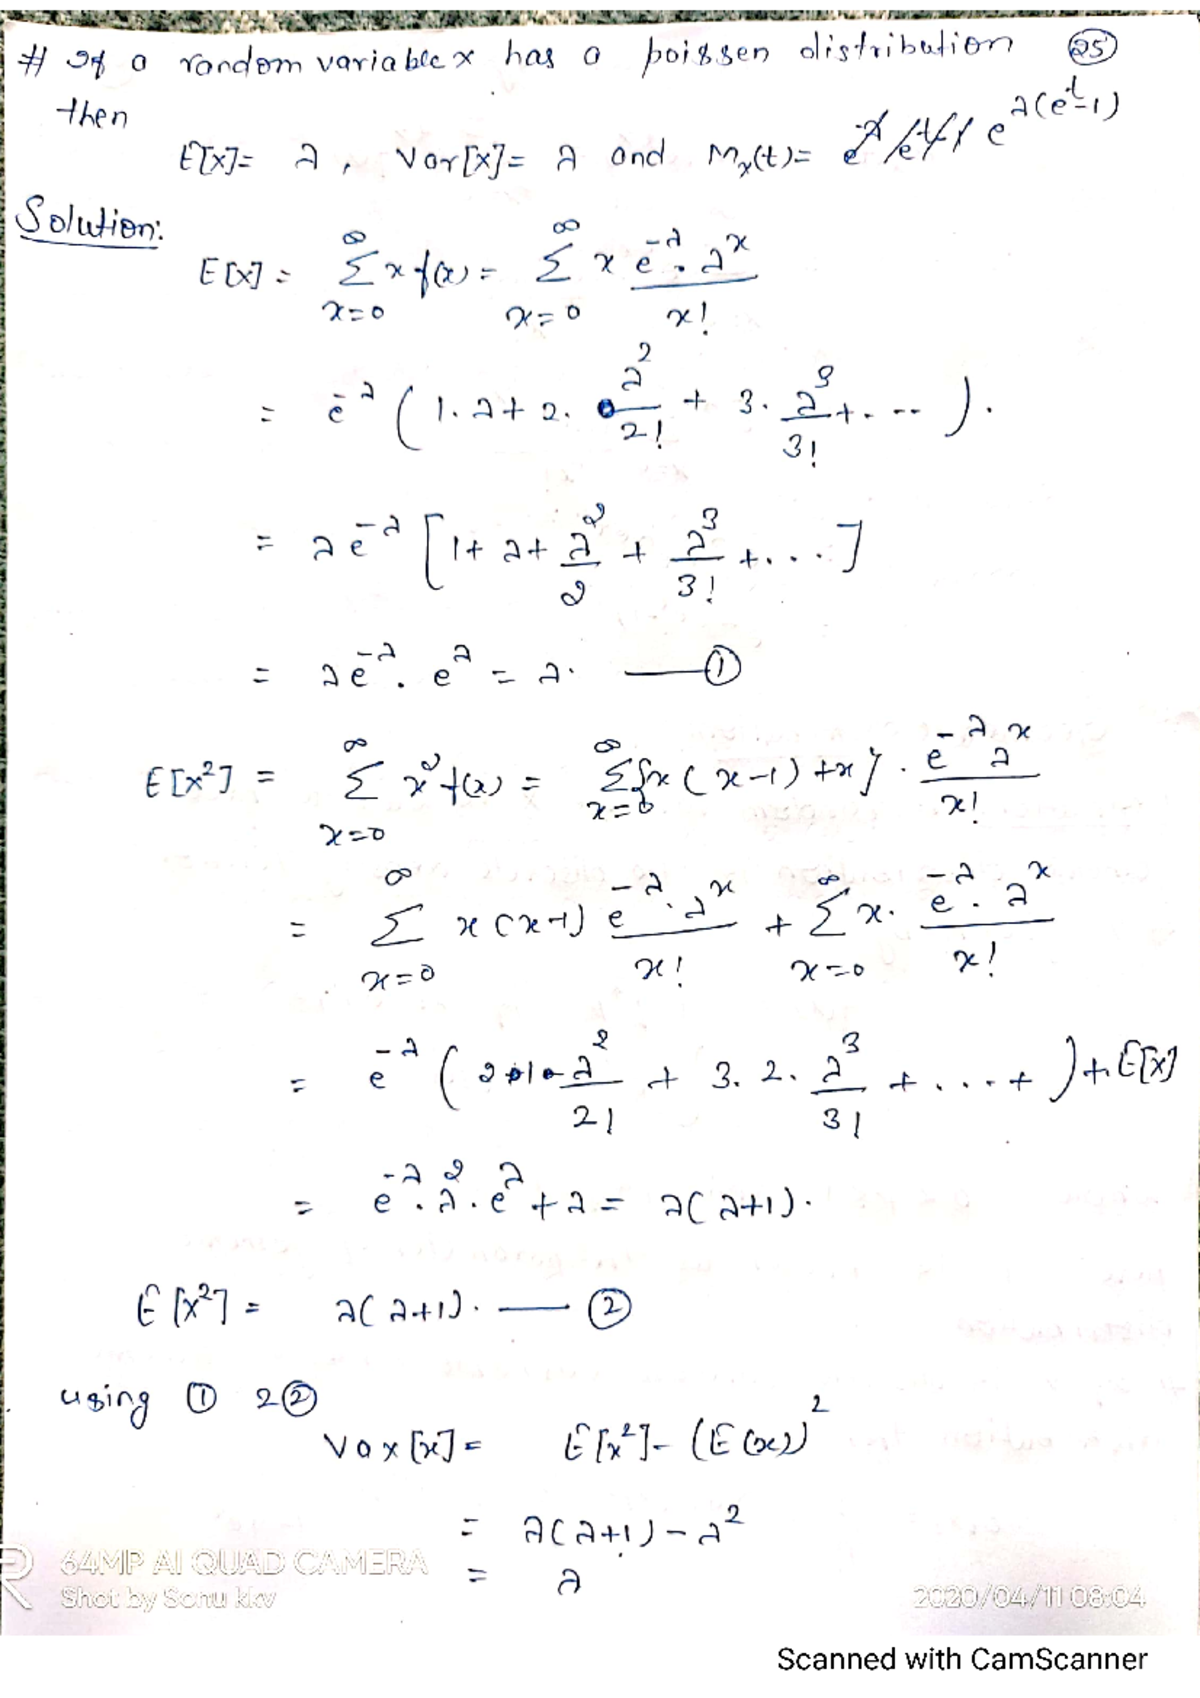 # If a random variable x has a poissen distribution (25)
then
E[X]= λ, Var[X]= λ and Mx(t)= e^λ(e^t-1)
Solution:
E[X] = ∑_{x=0}^∞ x f(x) = ∑_{x=0}^∞ x e^-λ . λ^x / x!
= e^-λ ( 1.λ + 2. λ^2/2! + 3. λ^3/3! + . -- ).
= λ e^-λ [ 1+ λ+ λ^2/2 + λ^3/3! +. . . ]
= λ e^-λ . e^λ = λ. —— ①
E[X^2] = ∑_{x=0}^∞ x^2 f(x) = ∑_{x=0}^∞ {x (x-1) +x} . e^-λ λ^x / x!
= ∑_{x=0}^∞ x (x-1) e^-λ . λ^x / x! + ∑_{x=0}^∞ x. e^-λ . λ^x / x!
= e^-λ ( 2.1. λ^2/2! + 3. 2. λ^3/3! + . . . + ) + E[X]
= e^-λ . λ^2 . e^λ + λ = λ( λ+1).
E[X^2] = λ( λ+1). —— ②
using ① 2 ②
Var [x] = E[x^2] - (E(x))^2
= λ( λ+1) - λ^2
= λ
64MP AI QUAD CAMERA
Shot by Sonu kkv
2020/04/11 08:04
Scanned with CamScanner